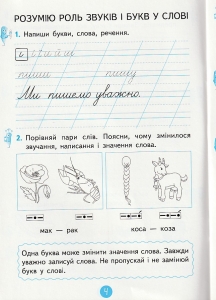 РОЗУМІЮ РОЛЬ ЗВУКІВ І БУКВ У СЛОВІ
1. Напиши букви, слова, речення.
пиши пишу
Ми пишемо уважно.
2. Порівняй пари слів. Поясни, чому змінилося
звучання, написання і значення слова.
мак — рак коса — коза
Одна буква може змінити значення слова. Завжди
уважно записуй слова. Не пропускай і не замінюй
букв у слові.
4